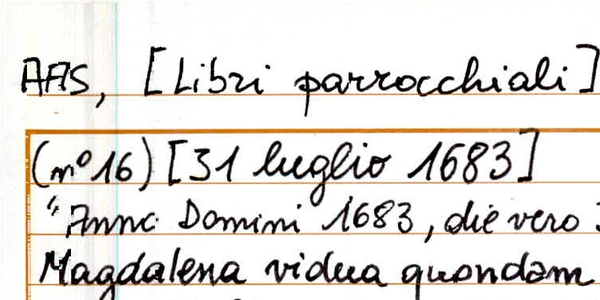 AAS, [Libri parrocchiali]
(nº 16) [31 luglio 1683]
"Anno Domini 1683, die vero
Magdalena vidua quondam